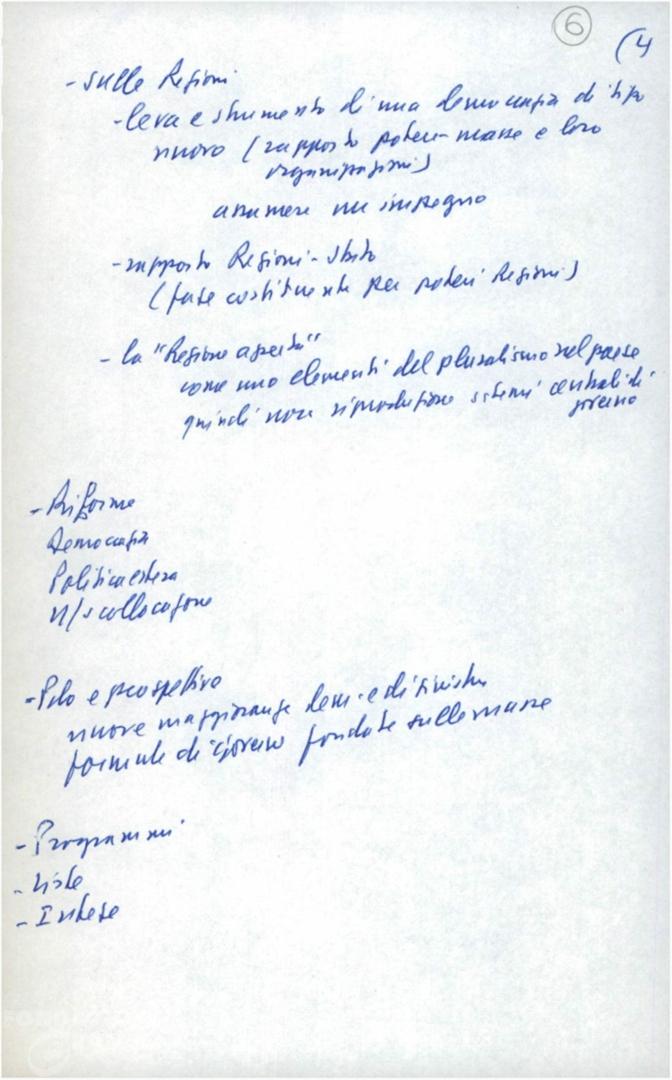 6
(4
- sulle Regioni
- leva e strumento di una democrazia di tipo
nuovo (rapporto poteri-masse e loro
organizzazioni)
assumere un impegno
- rapporto Regioni-Stato
(fase costituente per poteri Regioni)
- la "Regione aperta"
come uno elementi del pluralismo nel paese
quindi non riproduzione sistemi centrali di
governo
- Riforme
Democrazia
Politica estera
n/s collocazione
- e prospettiva
nuove maggioranze dem. e di sinistra
formule di governo fondate sulle masse
- Programmi
- Liste
- Intese